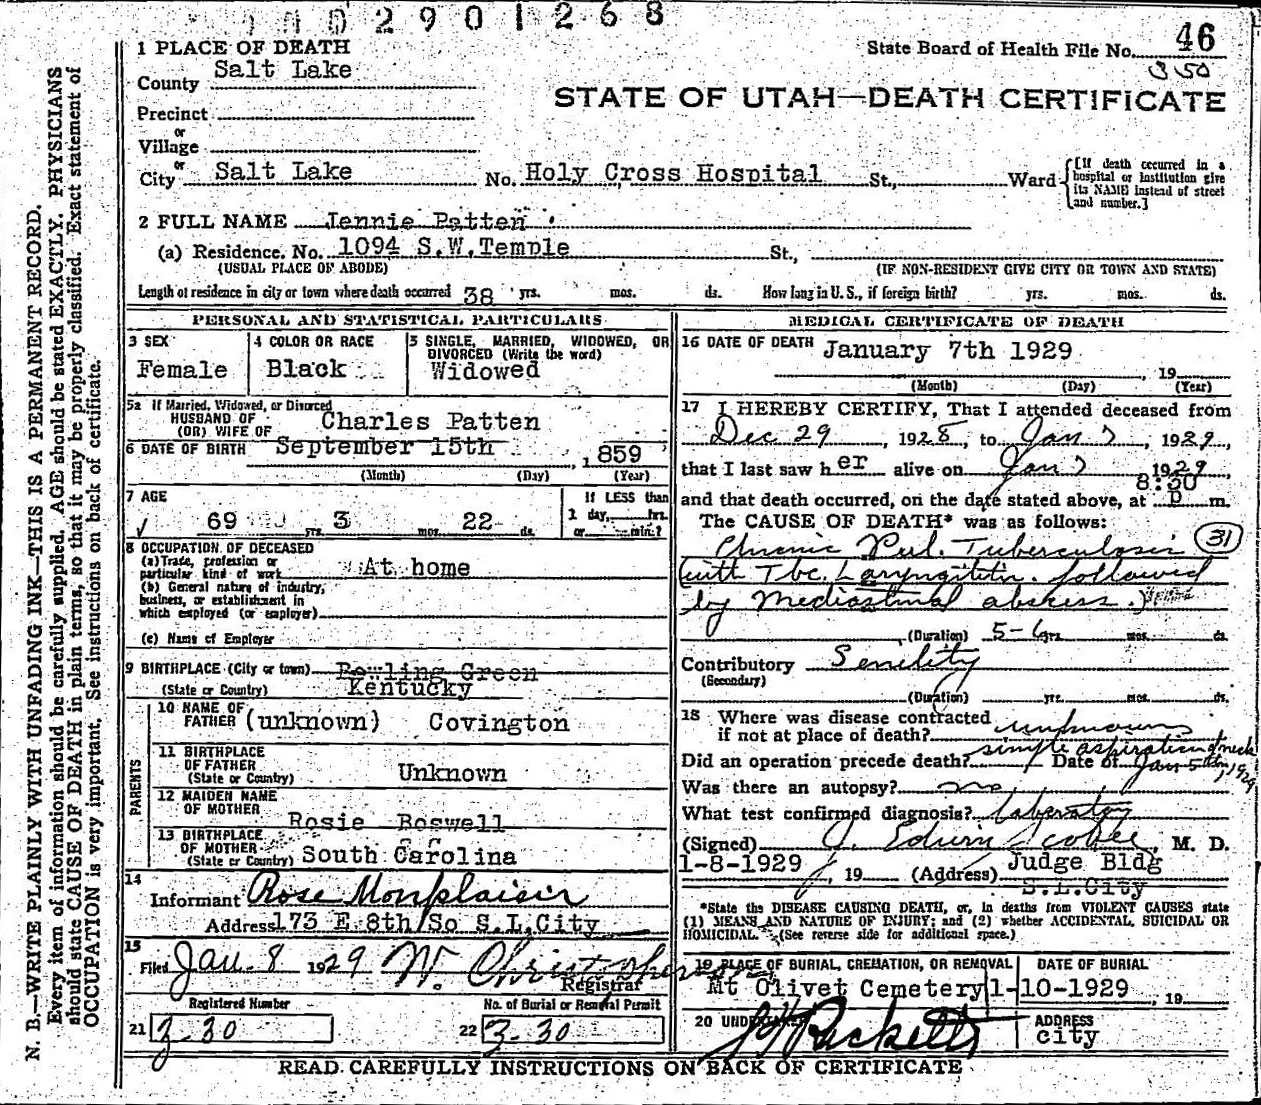 2901268
1 PLACE OF DEATH
State Board of Health File No. 46
350
County Salt Lake
STATE OF UTAH—DEATH CERTIFICATE
Precinct
or
Village
or
City Salt Lake No. Holy Cross Hospital St., Ward [If death occurred in a hospital or institution give its NAME instead of street and number.]
2 FULL NAME Jennie Patten
(a) Residence. No. 1094 S.W.Temple St.,
(USUAL PLACE OF ABODE) (IF NON-RESIDENT GIVE CITY OR TOWN AND STATE)
Length of residence in city or town where death occurred 38 yrs. mos. ds. How long in U. S., if foreign birth? yrs. mos. ds.
PERSONAL AND STATISTICAL PARTICULARS
3 SEX
Female
4 COLOR OR RACE
Black
5 SINGLE, MARRIED, WIDOWED, OR DIVORCED (Write the word)
Widowed
5a If Married, Widowed, or Divorced
HUSBAND OF
(OR) WIFE OF Charles Patten
6 DATE OF BIRTH September 15th, 1859
(Month) (Day) (Year)
7 AGE
69 yrs. 3 mos. 22 ds.
If LESS than
1 day, hrs.
or min.?
8 OCCUPATION OF DECEASED
(a) Trade, profession or
particular kind of work At home
(b) General nature of industry,
business, or establishment in
which employed (or employer)
(c) Name of Employer
9 BIRTHPLACE (City or town) Bowling Green
(State or Country) Kentucky
PARENTS
10 NAME OF
FATHER (unknown) Covington
11 BIRTHPLACE
OF FATHER
(State or Country) Unknown
12 MAIDEN NAME
OF MOTHER Rosie Boswell
13 BIRTHPLACE
OF MOTHER
(State or Country) South Carolina
14
Informant Rose Monplaisir
Address 173 E 8th So S.L.City
15
Filed Jan. 8 1929 W. Christopherson
Registrar
Registered Number
21 3-30
No. of Burial or Removal Permit
22 3-30
MEDICAL CERTIFICATE OF DEATH
16 DATE OF DEATH January 7th 1929
, 19
(Month) (Day) (Year)
17 I HEREBY CERTIFY, That I attended deceased from
Dec 29, 1928, to Jan 7, 1929,
that I last saw her alive on Jan 7 1929
8:30
and that death occurred, on the date stated above, at p m.
The CAUSE OF DEATH* was as follows:
Chronic Pul. Tuberculosis (31)
(with Tbc. Laryngitis. followed
by Mediastinal abscess.)
(Duration) 5-6 yrs. mos. ds.
Contributory Senility
(Secondary)
(Duration) yrs. mos. ds.
18 Where was disease contracted
if not at place of death? unknown
Did an operation precede death? simple aspiration of neck Date of Jan 5th, 1929
Was there an autopsy? no
What test confirmed diagnosis? laboratory
(Signed) J. Edwin Scobee, M. D.
1-8-1929, 19 (Address) Judge Bldg
S.L.City
*State the DISEASE CAUSING DEATH, or, in deaths from VIOLENT CAUSES state
(1) MEANS AND NATURE OF INJURY; and (2) whether ACCIDENTAL, SUICIDAL OR
HOMICIDAL. (See reverse side for additional space.)
19 PLACE OF BURIAL, CREMATION, OR REMOVAL
Mt Olivet Cemetery
DATE OF BURIAL
1-10-1929, 19
20 UNDERTAKER
ADDRESS
city
READ CAREFULLY INSTRUCTIONS ON BACK OF CERTIFICATE
N. B.—WRITE PLAINLY WITH UNFADING INK—THIS IS A PERMANENT RECORD.
Every item of information should be carefully supplied. AGE should be stated EXACTLY. PHYSICIANS
should state CAUSE OF DEATH in plain terms, so that it may be properly classified. Exact statement of
OCCUPATION is very important. See instructions on back of certificate.